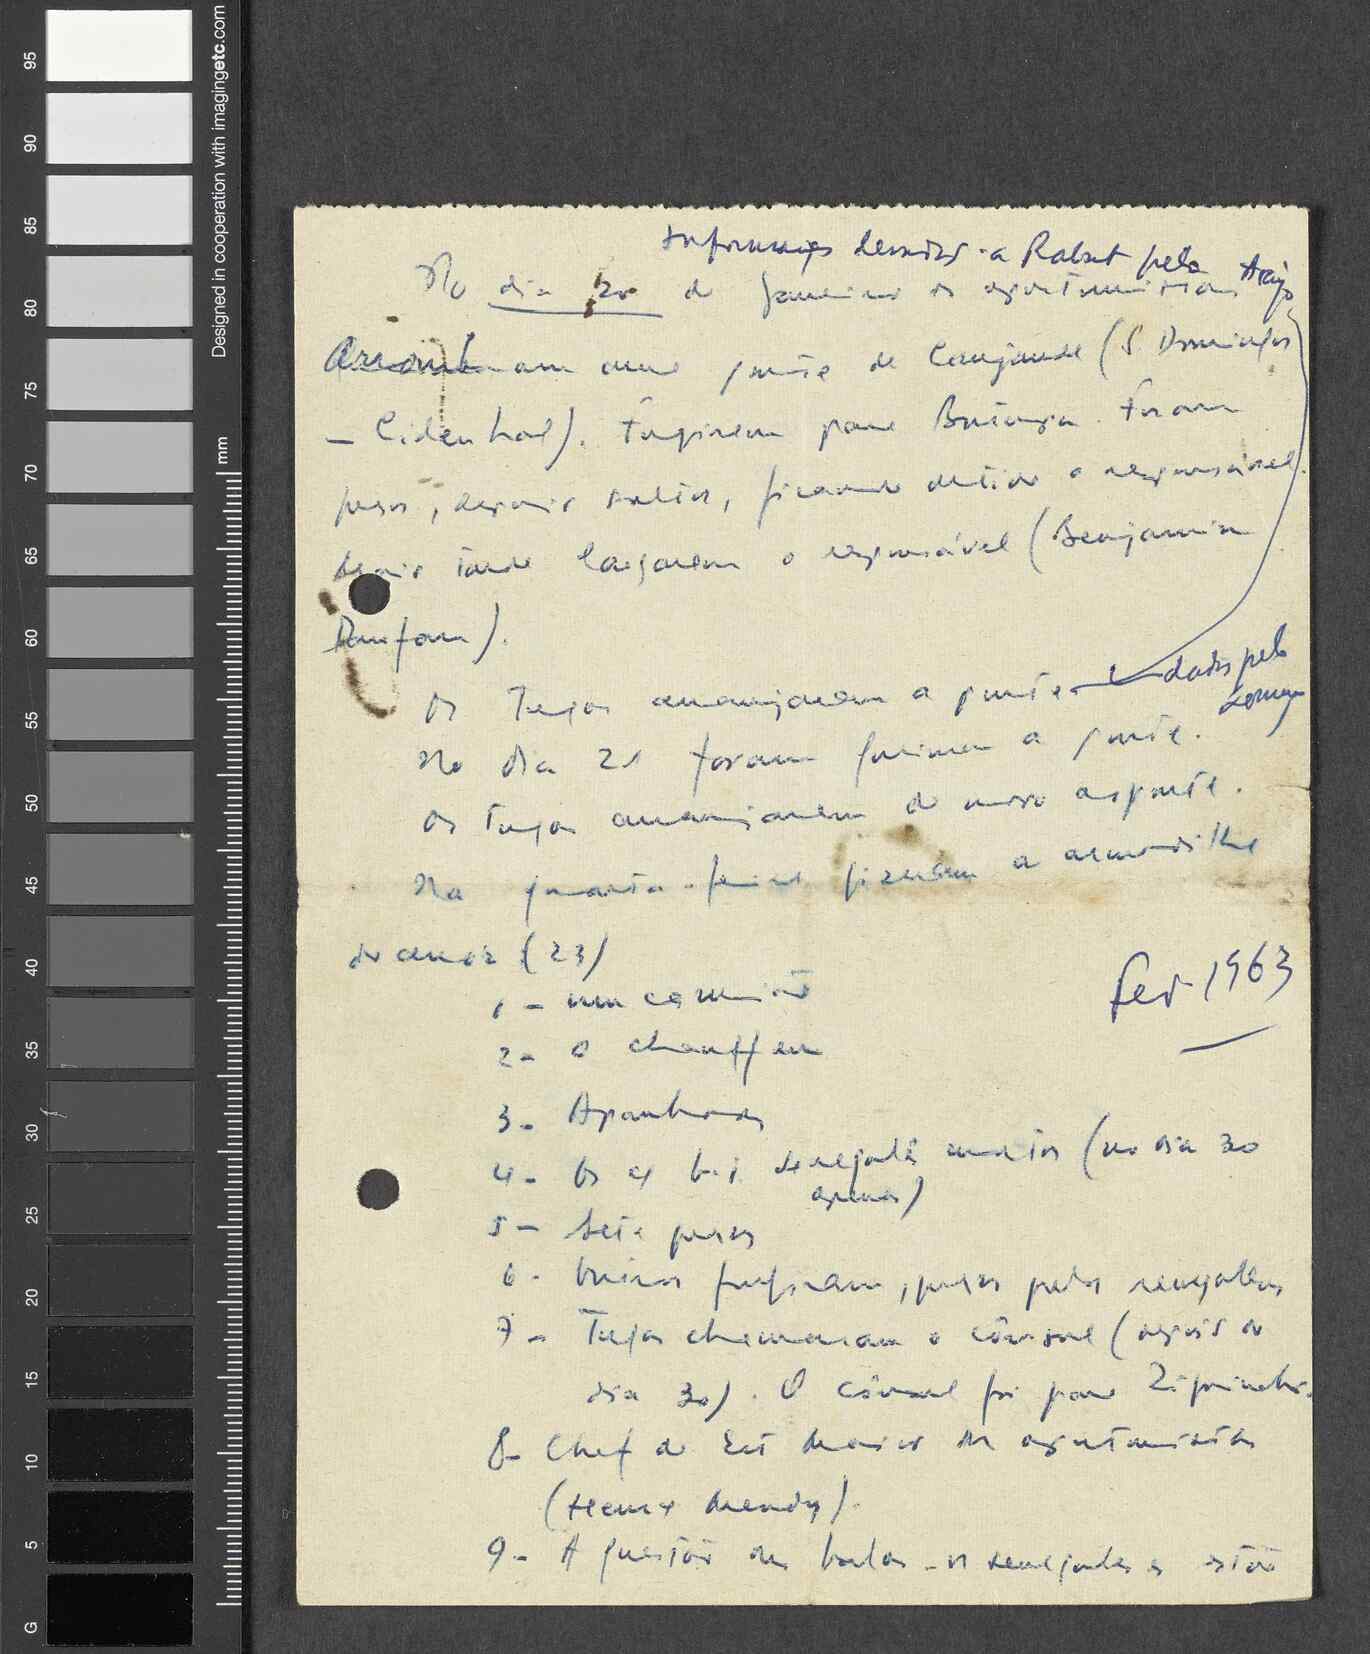 Designed in cooperation with imagingetc.com
mm
95
90
85
80
75
70
65
60
55
50
45
40
35
30
25
20
15
10
5
G
Informações a Rabat pelo Araújo
No dia 20 de Janeiro os oportunistas
Arrombaram uma ponte de Campada (S. Domingos
- ). Fugiram para Foram
presos, depois soltos, ficando detido o responsável.
Mais tarde largaram o responsável (Benjamin
).
Os Tugas arranjaram a ponte. dados pelo
No dia 21 foram queimar a ponte.
Os tugas arranjaram de novo a ponte.
Na quarta-feira fizeram a armadilha
do (23)
Fev. 1963
1 - um camião
2 - o chauffeur
3 - Apanhados
4 - Os mortos (no dia 30
apenas)
5 - Sete presos
6 - Vários fugiram, presos pelos senegaleses
7 - Tugas chamaram o cônsul (depois do
dia 30). O cônsul foi para Ziguinchor.
8 - Chef do Est Maior dos oportunistas
(Mendy).
9 - A questão das balas - os senegaleses estão